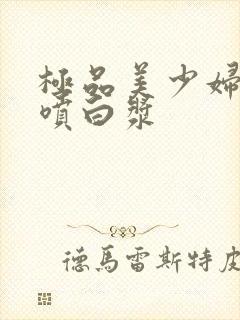 極品美少婦
噴白漿
德馬雷斯特皮